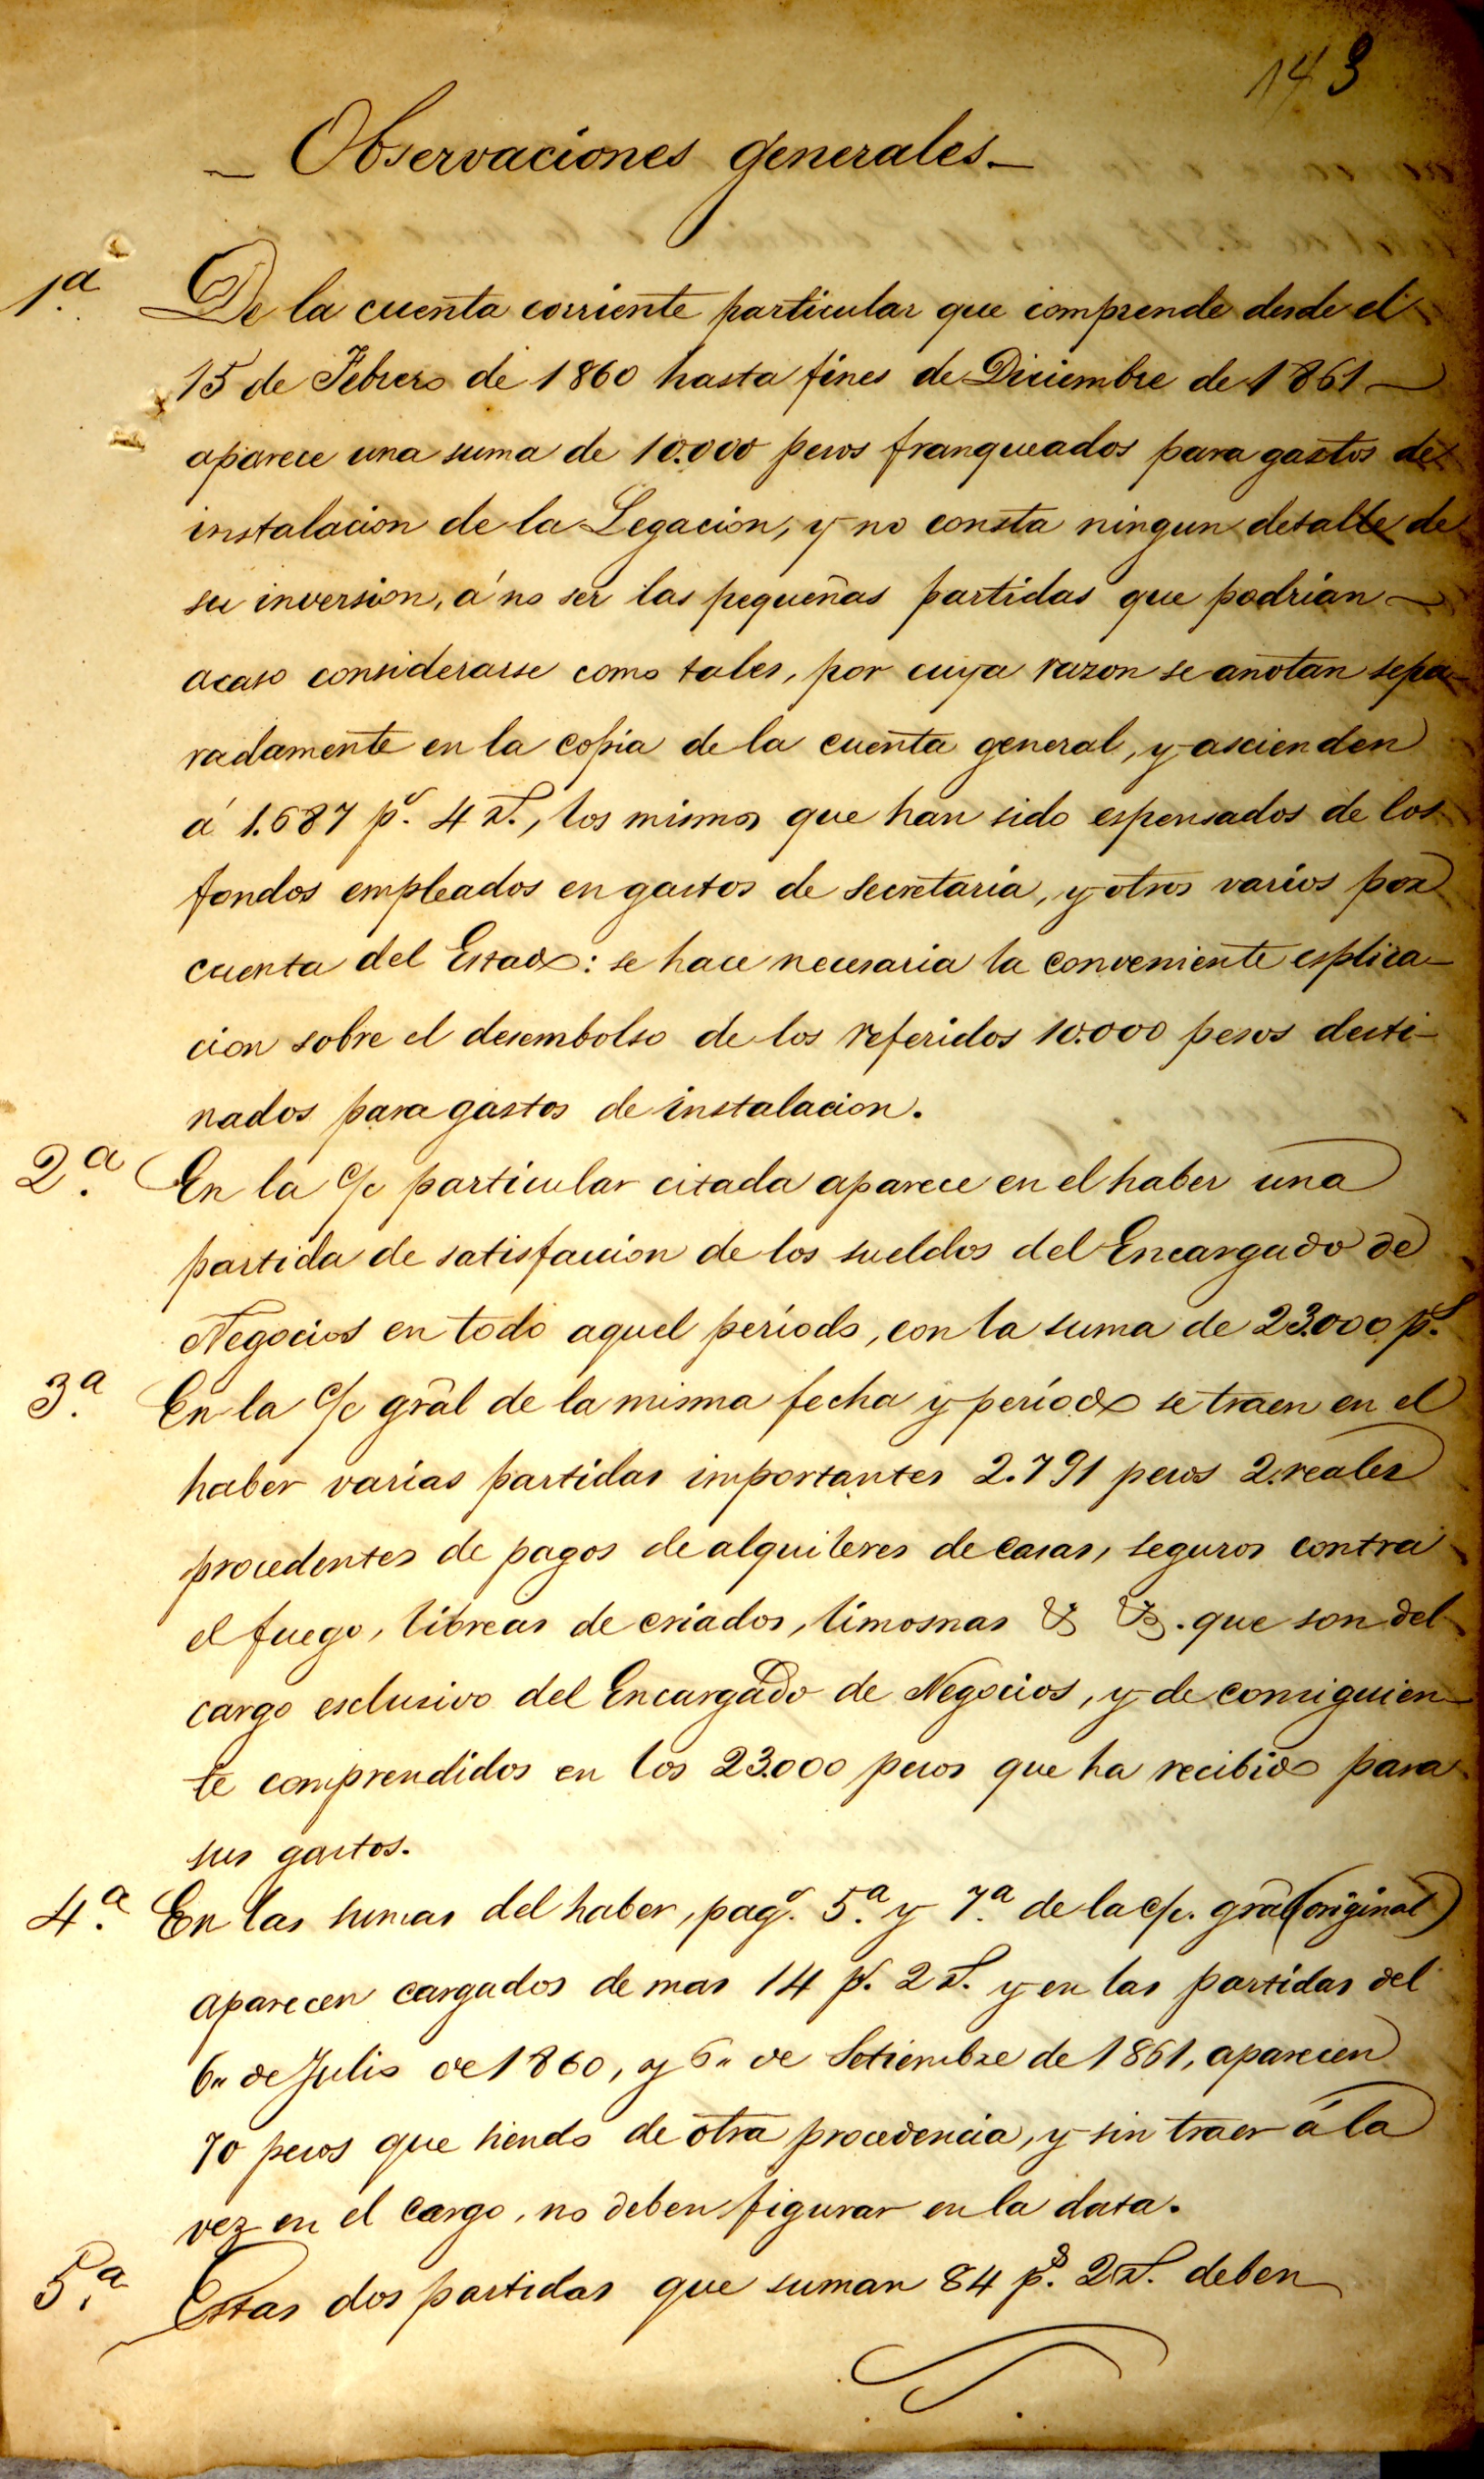 143
Observaciones generales
1ª. De la cuenta corriente particular que comprende desde el
15 de Febrero de 1860 hasta fines de Diciembre de 1861
aparece una suma de 10.000 pesos franqueados para gastos de
instalacion de la Legacion, y no consta ningun detalle de
su inversion, á no ser las pequeñas partidas que podrian
acaso considerarse como tales, por cuya razon se anotan sepa-
radamente en la copia de la cuenta general, y ascienden
á 1.687 ps. 4 rs., los mismos que han sido espensados de los
fondos empleados en gastos de secretaria, y otros varios por
cuenta del Estado: se hace necesaria la conveniente esplica-
cion sobre el desembolso de los referidos 10.000 pesos desti-
nados para gastos de instalacion.
2ª. En la c/c particular citada aparece en el haber una
partida de satisfaccion de los sueldos del Encargado de
Negocios en todo aquel período, con la suma de 23.000 ps.
3ª. En la c/c gral de la misma fecha y período se traen en el
haber varias partidas importantes 2.791 pesos 2. reales
procedentes de pagos de alquileres de casas, seguros contra
el fuego, libreas de criados, limosnas & &. que son del
cargo esclusivo del Encargado de Negocios, y de consiguien-
te comprendidos en los 23.000 pesos que ha recibido para
sus gastos.
4ª. En las sumas del haber, pags. 5ª. y 7ª. de la c/c. gral (original)
aparecen cargados de mas 14 ps. 2 rs. y en las partidas del
6 de Julio de 1860, y 6 de Setiembre de 1861, aparecen
70 pesos que siendo de otra procedencia, y sin traer á la
vez en el cargo, no deben figurar en la data.
5ª. Estas dos partidas que suman 84 ps. 2 rs. deben